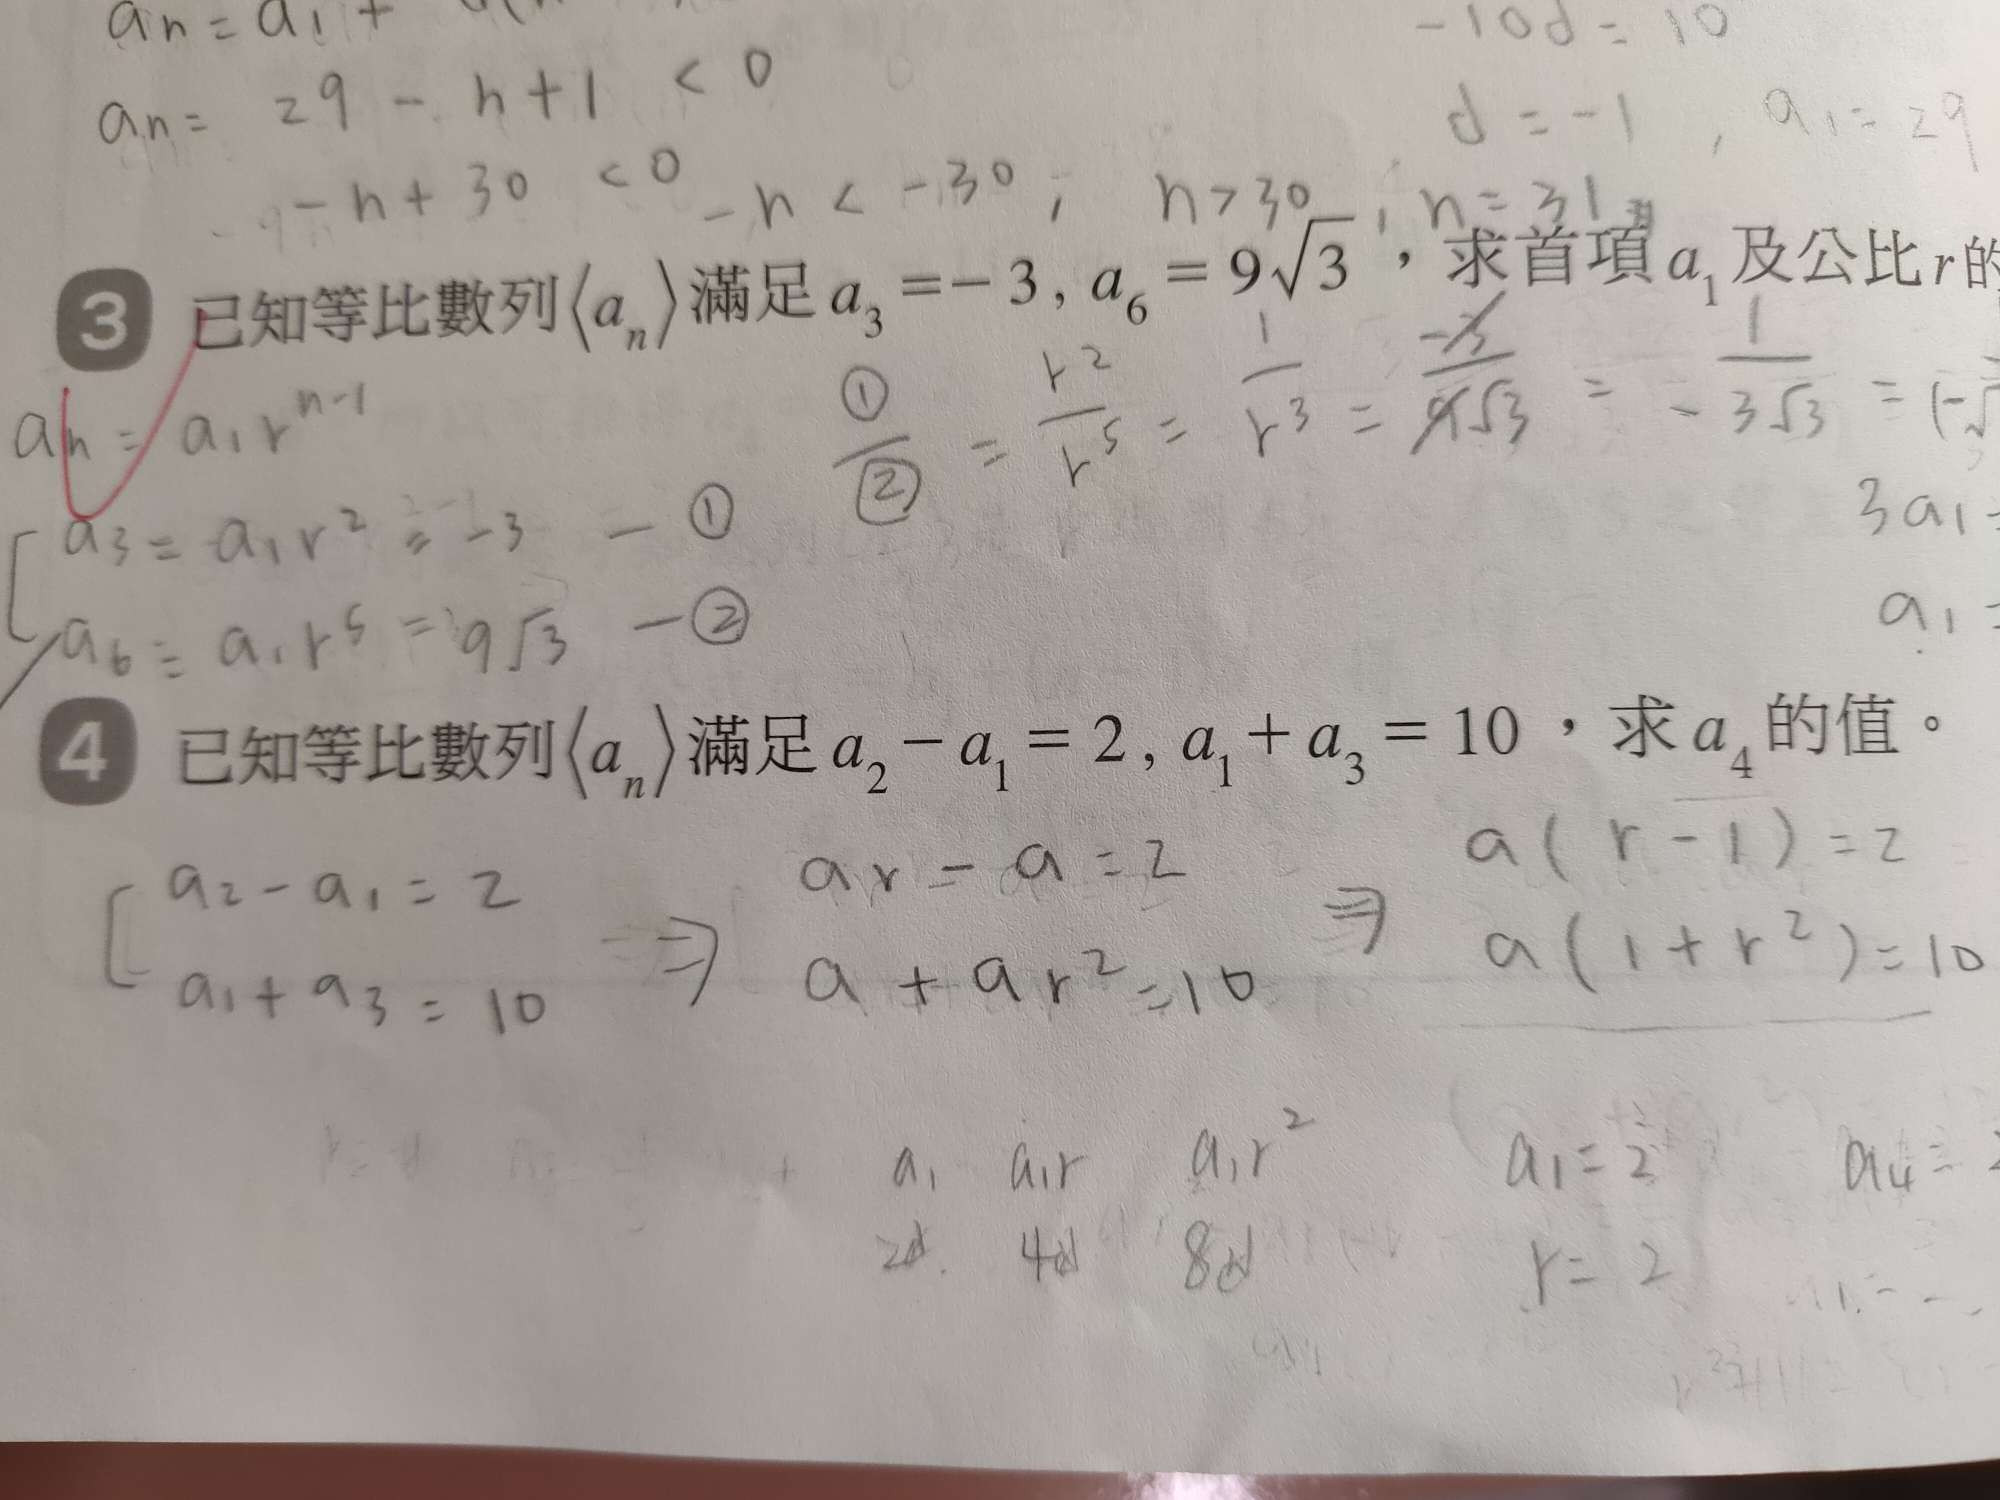 an = a1 +
-10d = 10
an = 29 - n + 1 < 0
d = -1 , a1 = 29
-n + 30 < 0 -n < -30 ; n > 30 , n = 31
3 已知等比數列⟨an⟩滿足 a3 = -3, a6 = 9√3 ,求首項 a1 及公比 r 的
an = a1 r^(n-1)
①/② = r^2/r^5 = 1/r^3 = -3/9√3 = 1/-3√3 =
a3 = a1 r^2 = -3 - ①
3a1
a6 = a1 r^5 = 9√3 - ②
a1 =
4 已知等比數列⟨an⟩滿足 a2 - a1 = 2, a1 + a3 = 10 ,求 a4 的值。
a2 - a1 = 2 ⇒ ar - a = 2 ⇒ a(r - 1) = 2
a1 + a3 = 10 a + ar^2 = 10 a(1 + r^2) = 10
a1 a1r a1r^2 a1 = 2 a4 =
2d 4d 8d r = 2